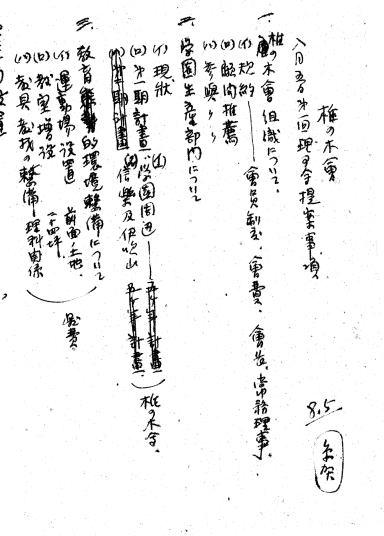 椎の木會
八月五日第一回理事会提案事項
8.5
一、椎の木會組織について、
(イ)規約——會員制度、會費、會長、常務理事、
(ロ)顧問推薦
(ハ)参與〃
二、学園生産部門について
(イ)現狀
(ロ)第一期計畫
(1)学園周辺——五ヶ年計畫
(2)信樂及伊吹山 五ヶ年計畫
椎の木会、
三、教育的環境整備について
(イ)運動場設置 前面土地、
(ロ)教室増設 二十四坪
(ハ)教具教材の整備 理科関係